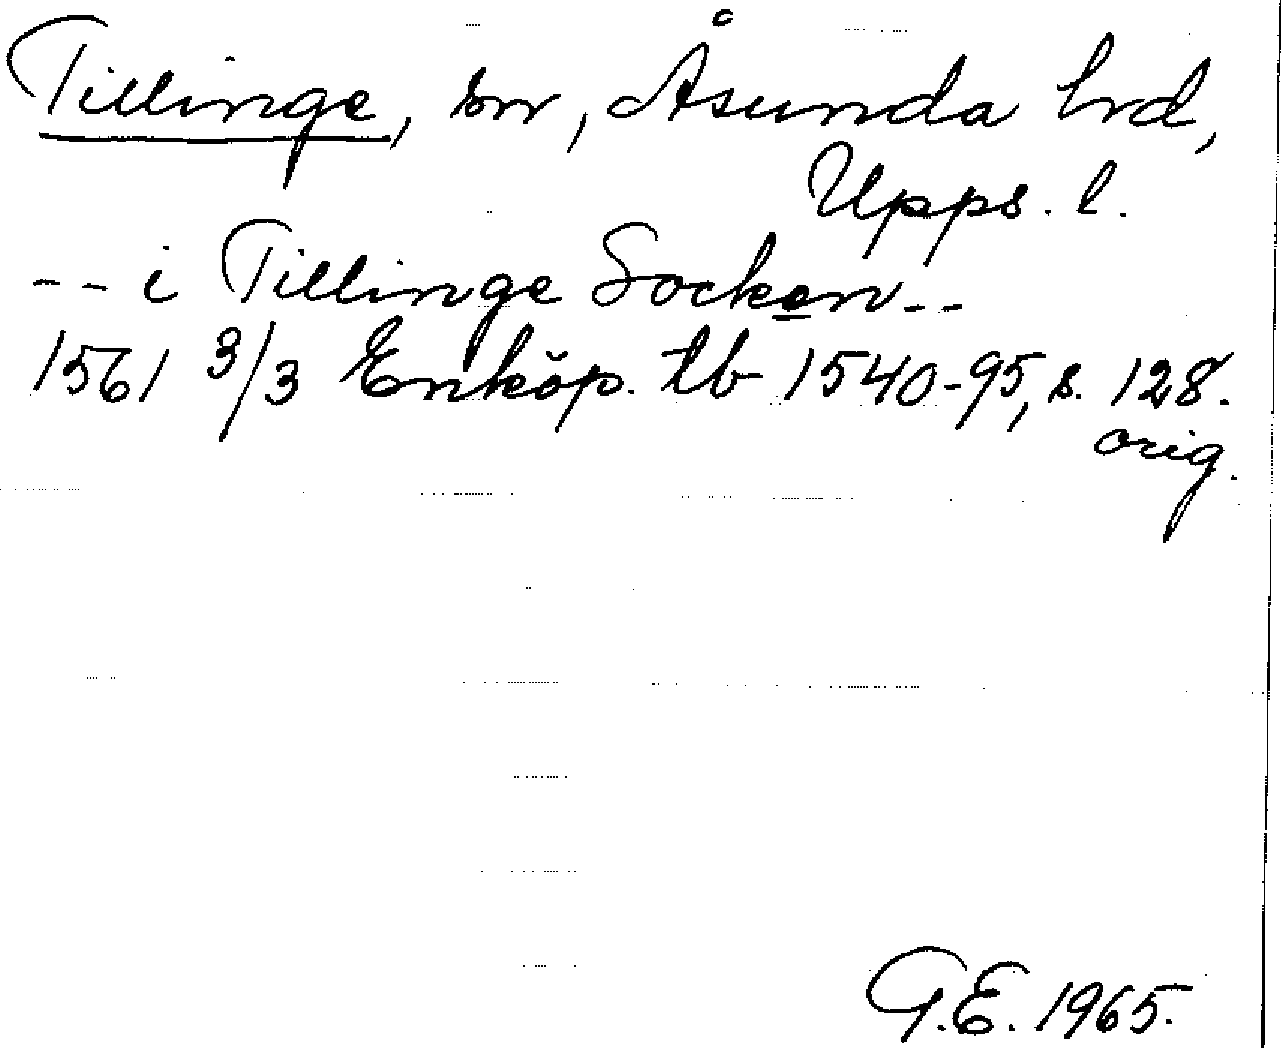 Tillinge, sn, Åsunda hrd,
Upps. l.
-- i Tillinge Socken --
1561 3/3 Enköp. tb 1540-95, s. 128.
orig.
G.E. 1965.